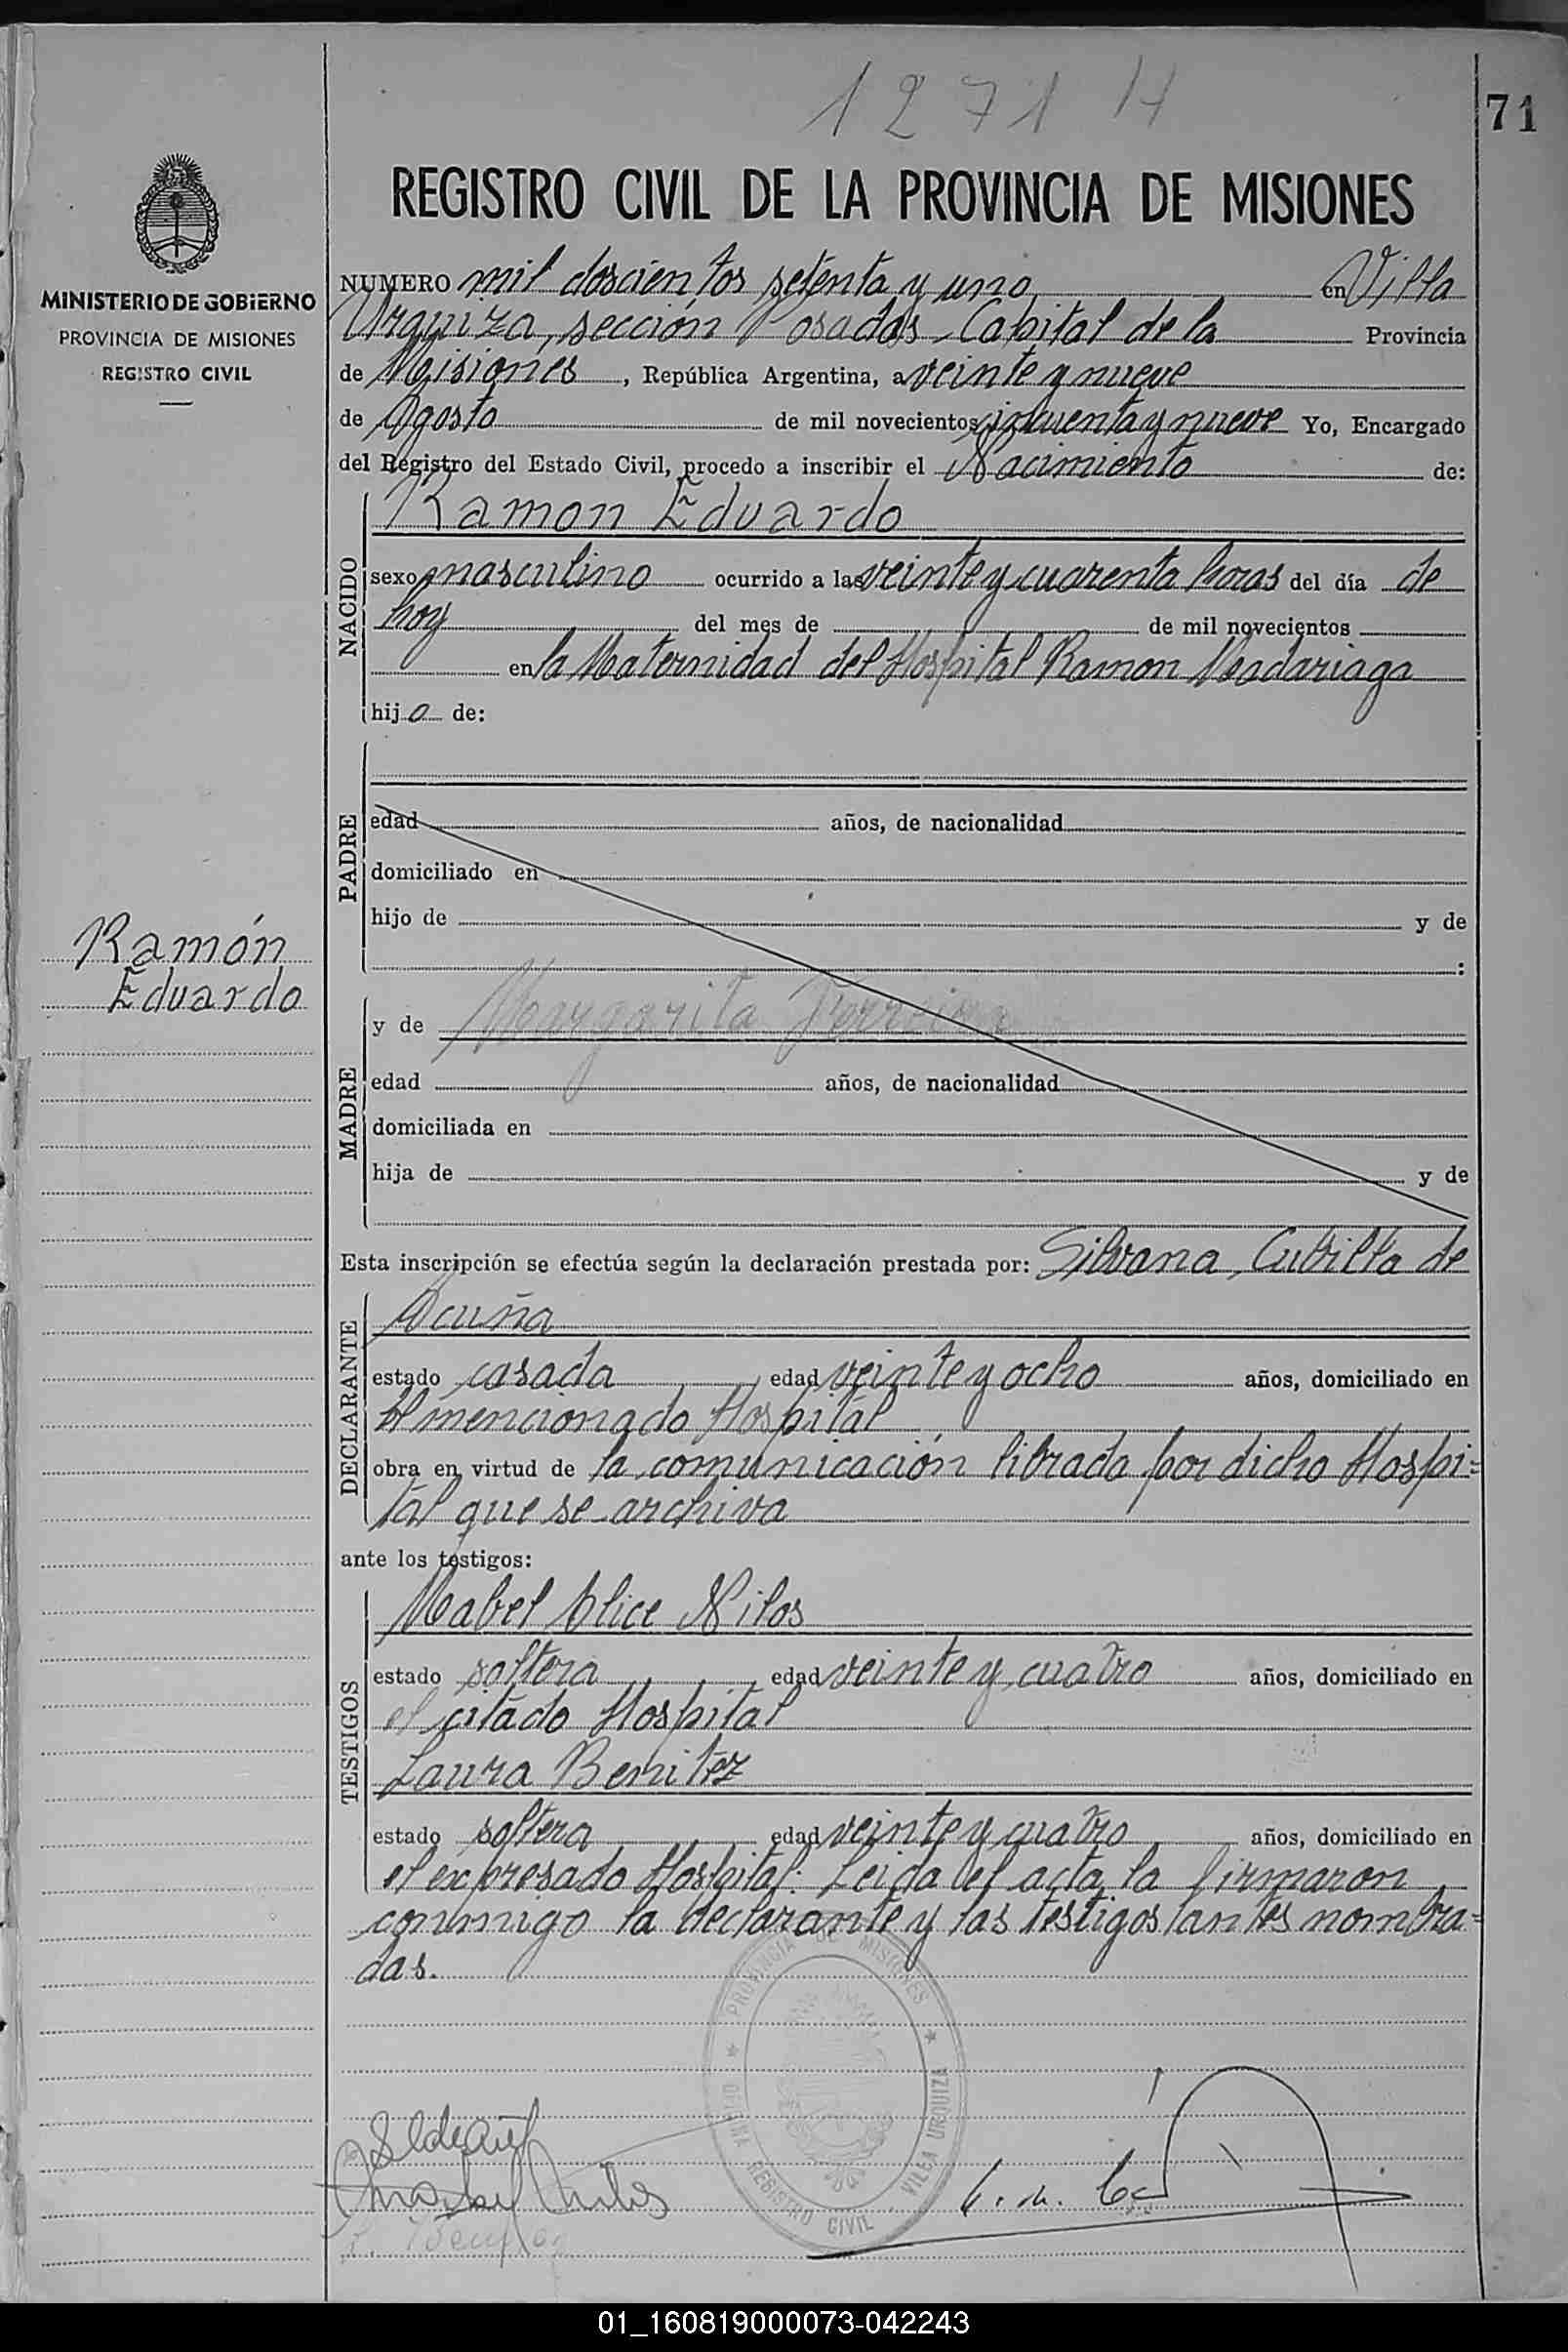 1271 H
71
REGISTRO CIVIL DE LA PROVINCIA DE MISIONES
MINISTERIO DE GOBIERNO
PROVINCIA DE MISIONES
REGISTRO CIVIL
NUMERO mil doscientos setenta y uno en Villa
Urquiza, sección Posadas, Capital de la Provincia
de Misiones, República Argentina, a veinte y nueve
de Agosto de mil novecientos cincuenta y nueve Yo, Encargado
del Registro del Estado Civil, procedo a inscribir el Nacimiento de:
NACIDO
Ramon Eduardo
sexo masculino ocurrido a las veinte y cuarenta horas del día de
hoy del mes de de mil novecientos
en la Maternidad del Hospital Ramon Madariaga
hijo de:
PADRE
edad años, de nacionalidad
domiciliado en
hijo de y de
:
Ramón
Eduardo
MADRE
y de Margarita Ferreira
edad años, de nacionalidad
domiciliada en
hija de y de
Esta inscripción se efectúa según la declaración prestada por: Silvana Cubilla de
DECLARANTE
Acuña
estado casada edad veinte y ocho años, domiciliado en
el mencionado Hospital
obra en virtud de la comunicación librada por dicho Hospi=
tal que se archiva
ante los testigos:
TESTIGOS
Mabel Alice Nilos
estado soltera edad veinte y cuatro años, domiciliado en
el citado Hospital
Laura Benitez
estado soltera edad veinte y cuatro años, domiciliado en
el expresado Hospital. Leida el acta la firmaron
conmigo la declarante y las testigos antes nombra=
das.
PROVINCIA DE MISIONES
OFICINA REGISTRO CIVIL VILLA URQUIZA
L. Benitez
01_160819000073-042243